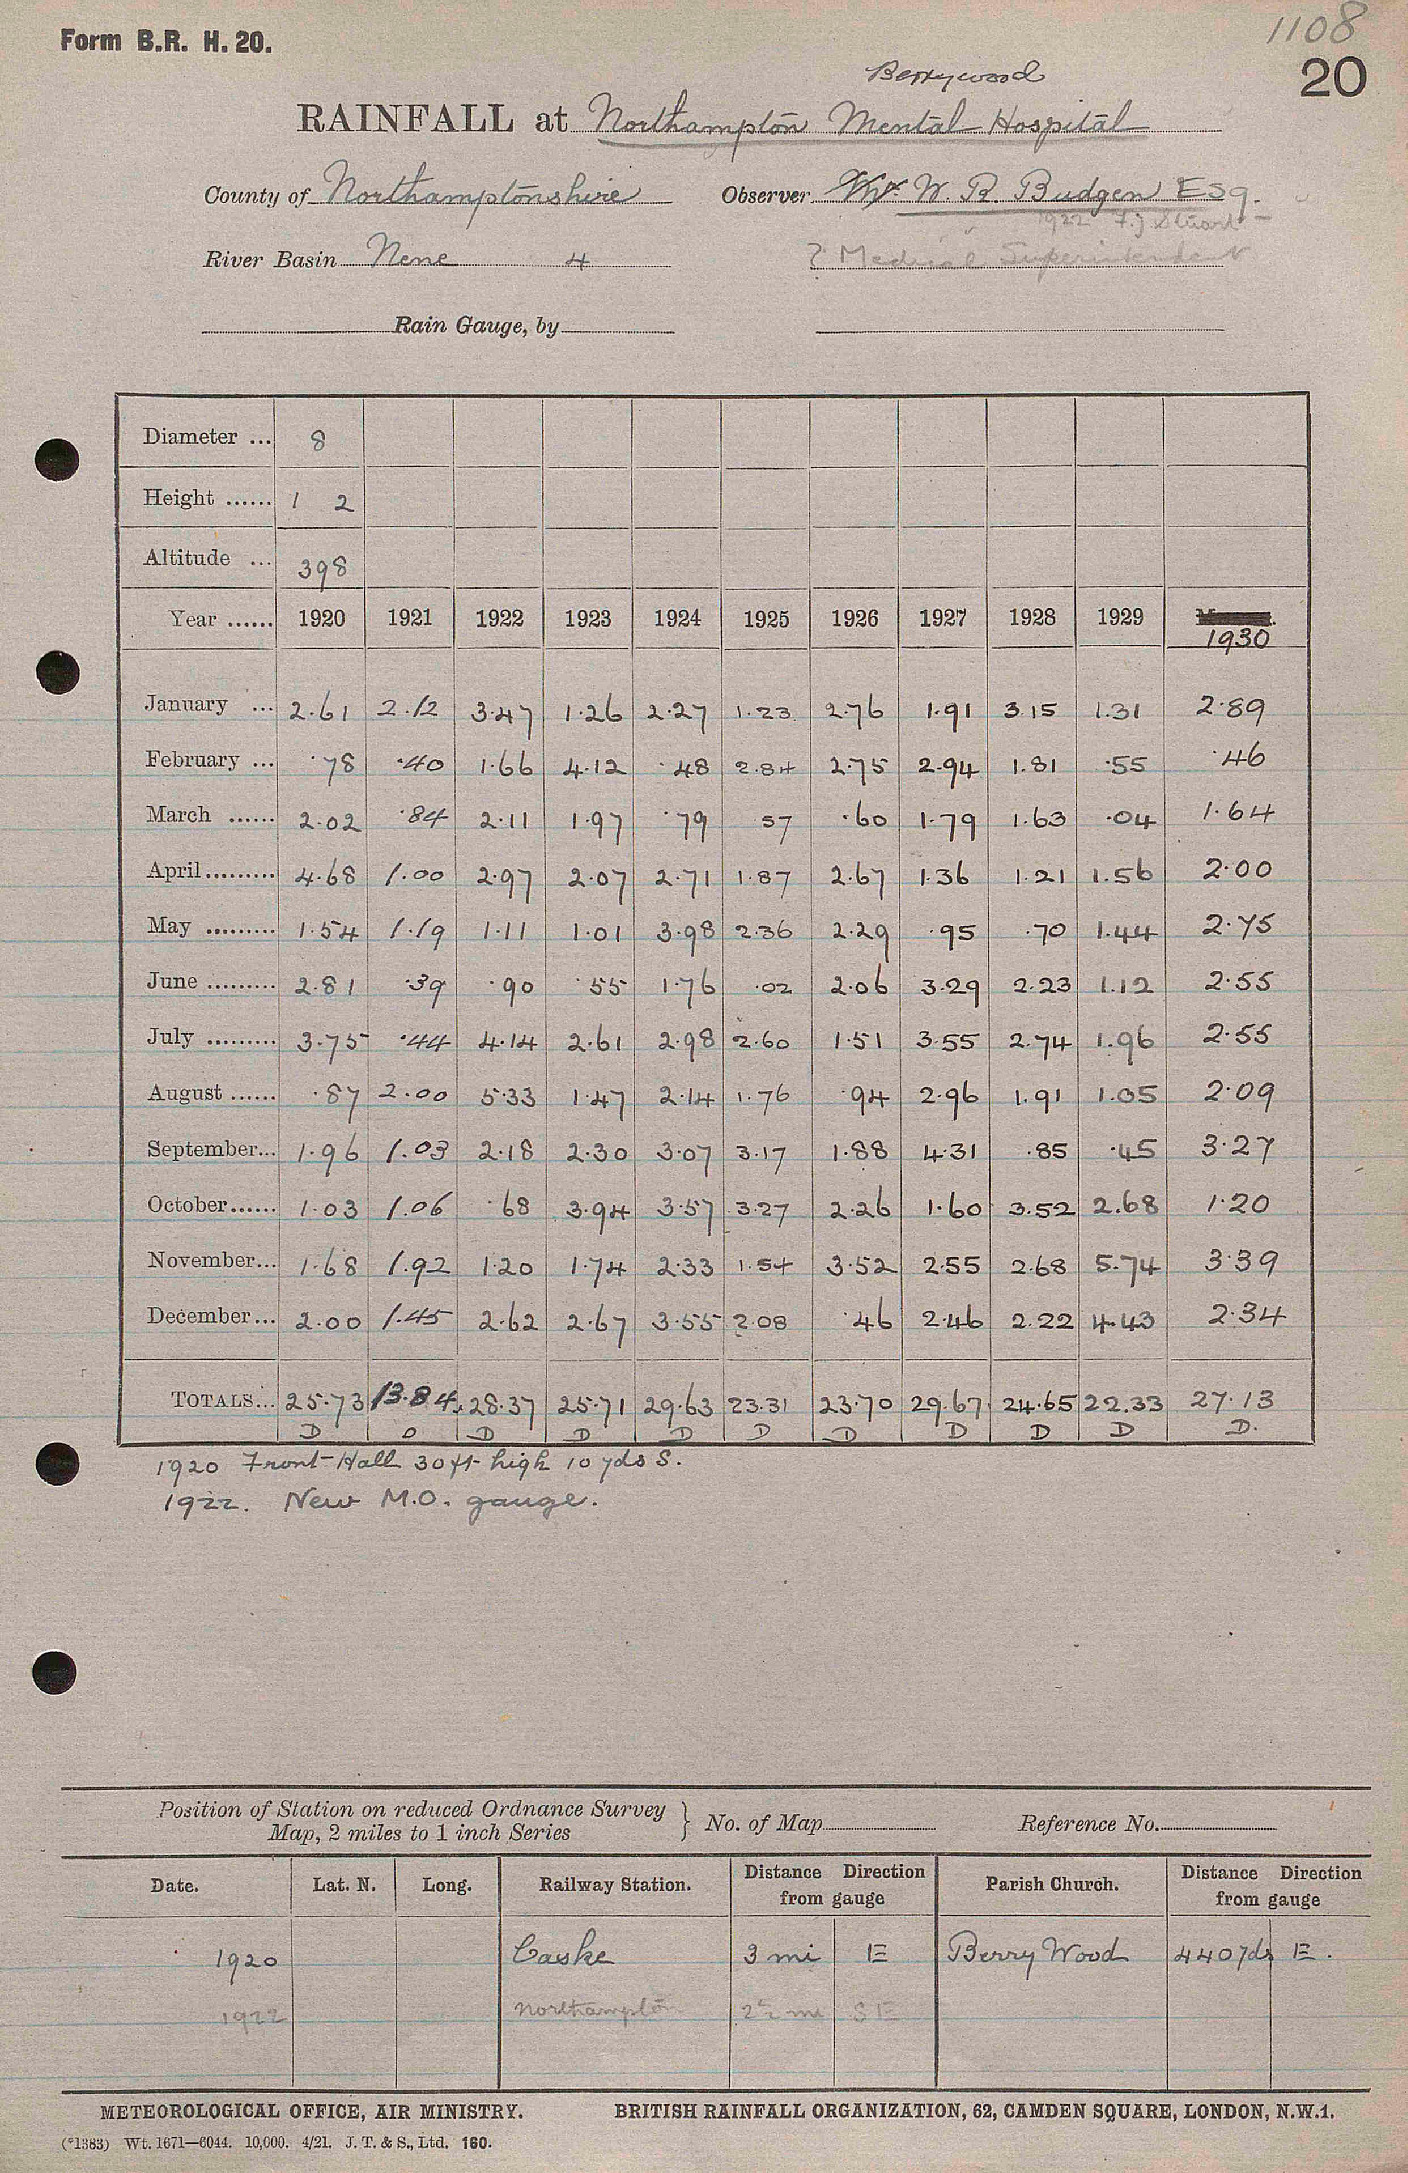 1108
Form B.R. H. 20.
20
Berrywood
RAINFALL at Northampton Mental Hospital
County of Northamptonshire Observer W. R. Budgen Esq.
1922 F.J Stuart
River Basin Nene 4 ? Medical Superintendent
Rain Gauge, by
Diameter ... 8
Height ...... 1 2
Altitude ... 398
Year ...... 1920 1921 1922 1923 1924 1925 1926 1927 1928 1929 1930
January ... 2.61 2.12 3.47 1.26 2.27 1.23 2.76 1.91 3.15 1.31 2.89
February ... .78 .40 1.66 4.12 .48 2.84 2.75 2.94 1.81 .55 .46
March ...... 2.02 .84 2.11 1.97 .79 57 .60 1.79 1.63 .04 1.64
April......... 4.68 1.00 2.97 2.07 2.71 1.87 2.67 1.36 1.21 1.56 2.00
May ......... 1.54 1.19 1.11 1.01 3.98 2.36 2.29 .95 .70 1.44 2.75
June ......... 2.81 .39 .90 .55 1.76 .02 2.06 3.29 2.23 1.12 2.55
July ......... 3.75 .44 4.14 2.61 2.98 2.60 1.51 3.55 2.74 1.96 2.55
August ...... .87 2.00 5.33 1.47 2.14 1.76 .94 2.96 1.91 1.05 2.09
September... 1.96 1.03 2.18 2.30 3.07 3.17 1.88 4.31 .85 .45 3.27
October...... 1.03 1.06 .68 3.94 3.57 3.27 2.26 1.60 3.52 2.68 1.20
November... 1.68 1.92 1.20 1.74 2.33 1.54 3.52 2.55 2.68 5.74 3.39
December... 2.00 1.45 2.62 2.67 3.55 2.08 .46 2.46 2.22 4.43 2.34
TOTALS... 25.73 13.84 28.37 25.71 29.63 23.31 23.70 29.67 24.65 22.33 27.13
D D D D D D D D D D D.
1920 Front Hall 30 ft high 10 yds S.
1922. New M.O. gauge.
Position of Station on reduced Ordnance Survey
Map, 2 miles to 1 inch Series } No. of Map Reference No.
Date. Lat. N. Long. Railway Station. Distance Direction from gauge Parish Church. Distance Direction from gauge
1920 Castle 3 mi E Berry Wood 440 yds E.
1922 Northampton 2½ mi SE
METEOROLOGICAL OFFICE, AIR MINISTRY. BRITISH RAINFALL ORGANIZATION, 62, CAMDEN SQUARE, LONDON, N.W.1.
(*1383) Wt. 1671—6044. 10,000. 4/21. J. T. & S., Ltd. 160.